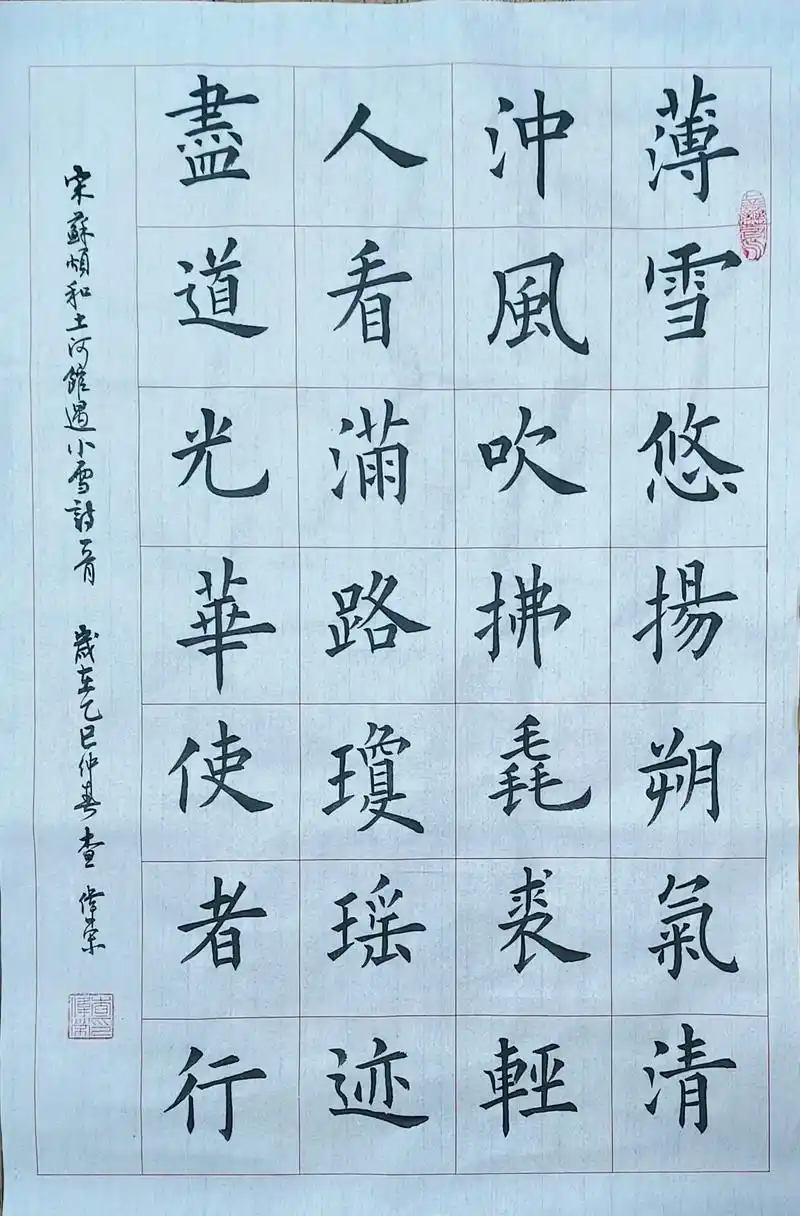 薄雪悠揚朔氣清
沖風吹拂毳裘輕
人看滿路瓊瑤迹
盡道光華使者行
宋蘇頌和土河館遇小雪詩一首 歲在乙巳仲春 查偉宗